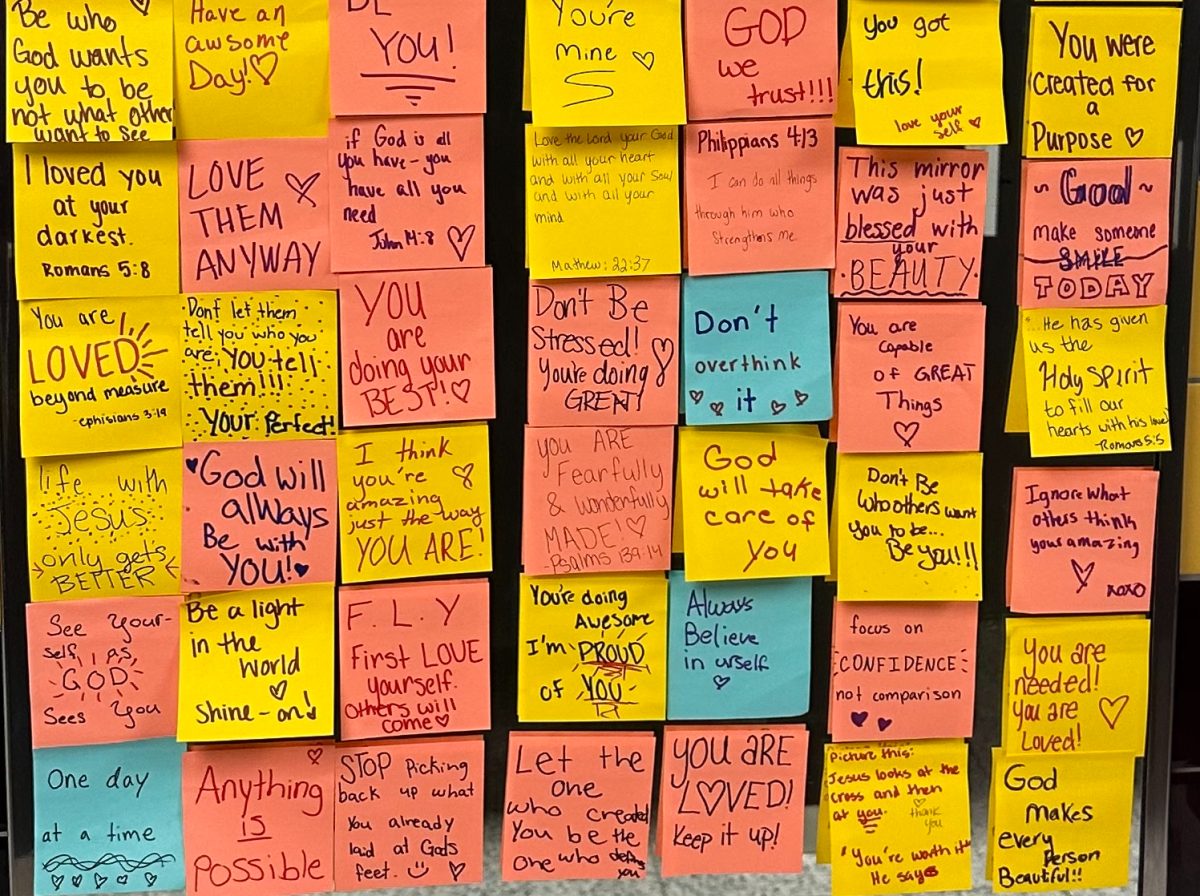 Be who
God wants
you to be
not what other
want to see
Have an
awsome
Day!
BE
YOU!
You're
mine
GOD
we
trust!!!
you got
this!
love your
self
You were
created for
a
Purpose
I loved you
at your
darkest.
Romans 5:8
LOVE
THEM
ANYWAY
if God is all
you have - you
have all you
need
John 14:8
Love the Lord your God
with all your heart
and with all your Soul
and with all your
mind
Mathew: 22:37
Philippians 4/3
I can do all things
through him who
Strengthens me
This mirror
was just
blessed with
your
BEAUTY.
~ Good ~
make someone
SMILE
TODAY
You are
LOVED
beyond measure
- ephisians 3:19
Dont let them
tell you who you
are, you tell
them!!!
Your Perfect!
YOU
are
doing your
BEST!
Don't Be
Stressed!
You're doing
GREAT!
Don't
overthink
it
You are
capable
of GREAT
Things
"...He has given
us the
Holy Spirit
to fill our
hearts with his love"
-Romans 5:5
life with
Jesus
only gets
BETTER
God will
always
Be with
you!
I think
you're
amazing
just the way
YOU ARE!
you ARE
Fearfully
& wonderfully
MADE!
-Psalms 139:14
God
will take
care of
you
Don't Be
who others want
you to be...
Be you!!!
Ignore what
others think
your amazing
xoxo
See your-
self as
GOD
Sees you
Be a light
in the
world
Shine - on!
F. L. Y
First LOVE
yourself.
Others will
come
You're doing
Awesome
I'm PROUD
of YOU
Always
Believe
in urself
focus on
CONFIDENCE
not comparison
You are
needed!
you are
Loved!
One day
at a time
Anything
is
Possible
STOP Picking
back up what
You already
laid at Gods
feet.
Let the
one
who created
You be the
one who defines
you
YOU ARE
LOVED!
Keep it up!
Picture this:
Jesus looks at the
cross and then
at you.
thank
you
"You're worth it"
He says
God
makes
every
Person
Beautiful!!